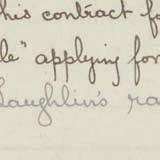 his contract f
le" applying for
Laughlin's ra